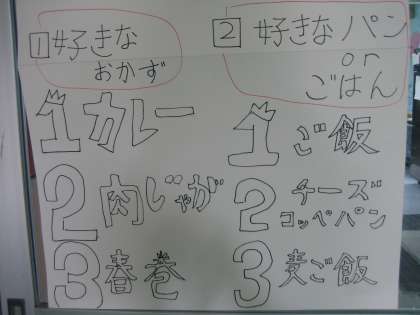 1 好きな
おかず
1 カレー
2 肉じゃが
3 春巻
2 好きなパン
or
ごはん
1 ご飯
2 チーズ
コッペパン
3 麦ご飯